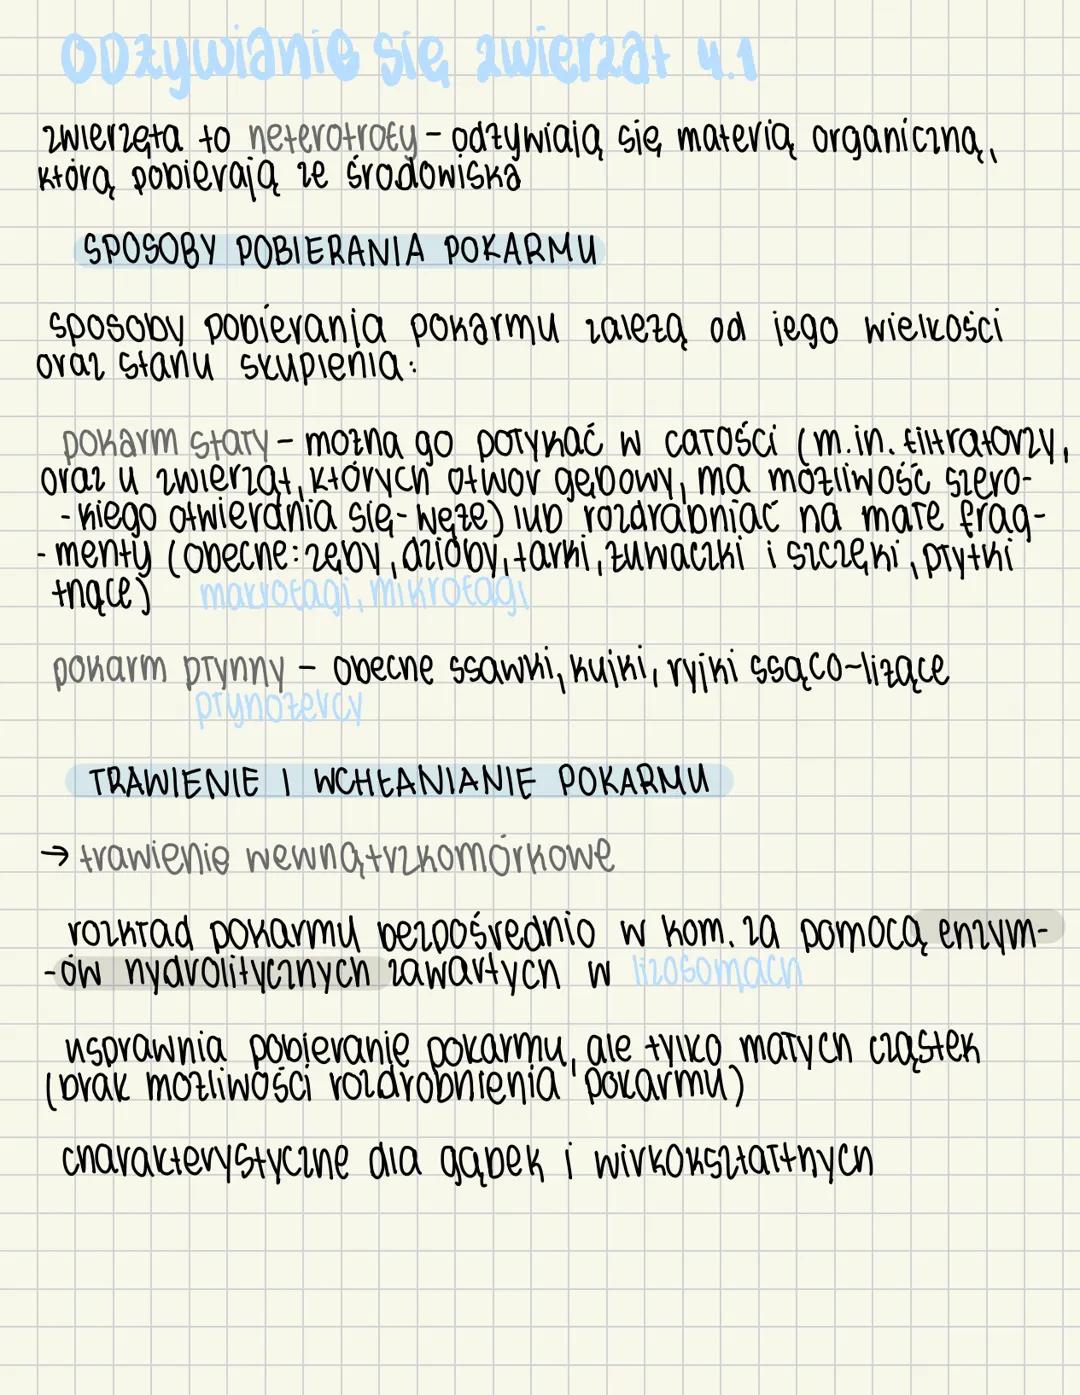 Odżywianie się zwierząt 4.1
zwierzęta to heterotrofy - odżywiają się materią organiczną,
którą pobierają ze środowiska
SPOSOBY POBIERANIA POKARMU
sposoby pobierania pokarmu zależą od jego wielkości
oraz stanu skupienia:
pokarm stały - można go połykać w całości (m.in. filtratorzy,
oraz u zwierząt, których otwór gębowy, ma możliwość szero-
-kiego otwierania się - węże) lub rozdrabniać na małe frag-
-menty (obecne: zęby, dzioby, tarki, żuwaczki i szczęki, płytki
tnące) makrofagi, mikrofagi
pokarm płynny - obecne ssawki, kujki, ryjki ssąco-liżące
płynożercy
TRAWIENIE I WCHŁANIANIE POKARMU
→ trawienie wewnątrzkomórkowe
rozkład pokarmu bezpośrednio w kom. za pomocą enzym-
-ów hydrolitycznych zawartych w lizosomach
usprawnia pobieranie pokarmu, ale tylko małych cząstek
(brak możliwości rozdrobnienia pokarmu)
charakterystyczne dla gąbek i wirkokształtnych